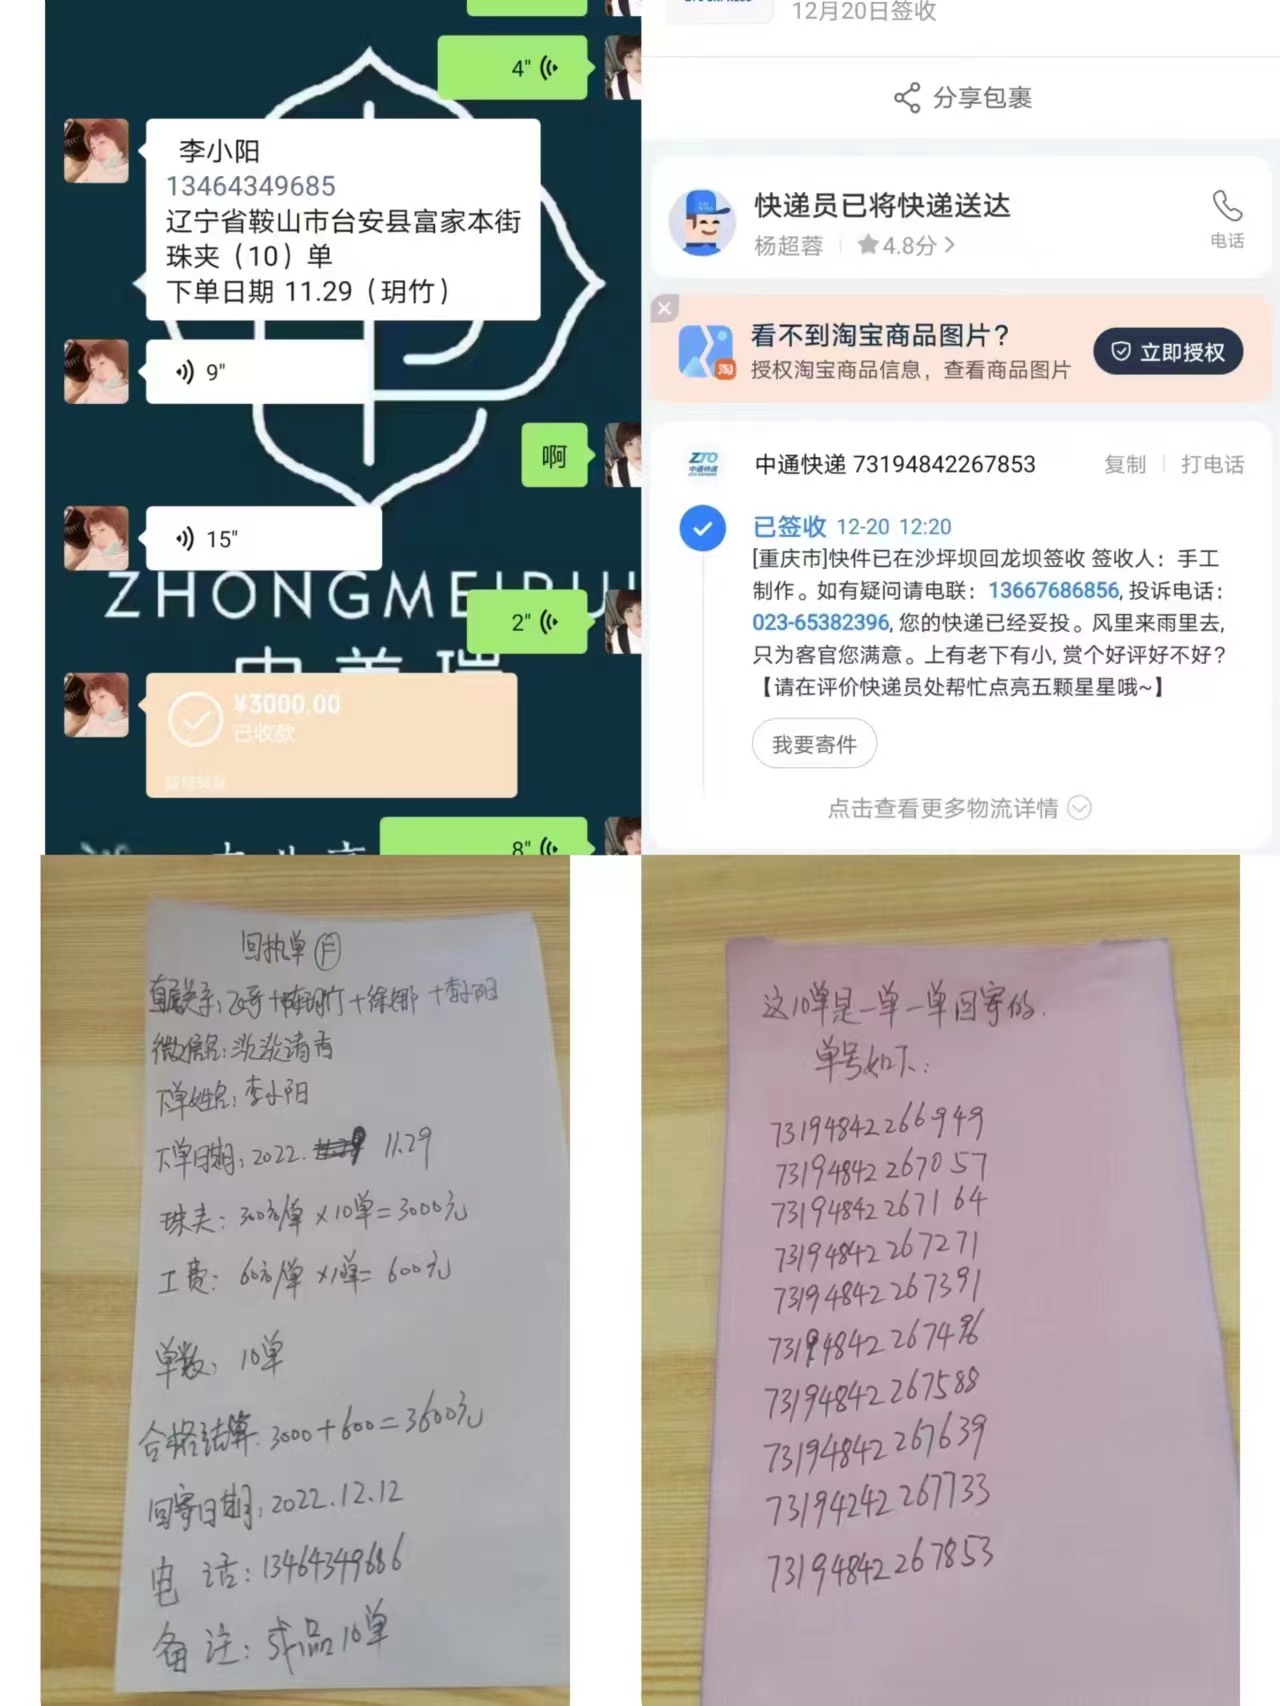 4"
李小阳
13464349685
辽宁省鞍山市台安县富家本街
珠夹（10）单
下单日期 11.29（玥竹）
9"
啊
15"
ZHONGMEIRUI
2"
中美瑞
¥3000.00
已收款
8"
12月20日签收
分享包裹
快递员已将快递送达
杨超蓉 4.8分
电话
看不到淘宝商品图片？
授权淘宝商品信息，查看商品图片
立即授权
淘
ZTO
中通快递
中通快递 73194842267853 复制 打电话
已签收 12-20 12:20
[重庆市]快件已在沙坪坝回龙坝签收 签收人：手工
制作。如有疑问请电联：13667686856, 投诉电话：
023-65382396, 您的快递已经妥投。风里来雨里去,
只为客官您满意。上有老下有小, 赏个好评好不好？
【请在评价快递员处帮忙点亮五颗星星哦~】
我要寄件
点击查看更多物流详情
回执单
直属关系：+陈玥竹+徐娜+李小阳
微信名：淡淡清香
下单姓名：李小阳
下单日期：2022. 11.29
珠夹：300元/单×10单=3000元
工费：60元/单×10单=600元
单数：10单
合格结算：3000+600=3600元
回寄日期：2022.12.12
电 话：13464349686
备 注：成品10单
这10单是一单一单回寄的.
单号如下：
73194842266949
73194842267057
73194842267164
73194842267271
73194842267391
73194842267496
73194842267588
73194842267639
73194242267733
73194842267853